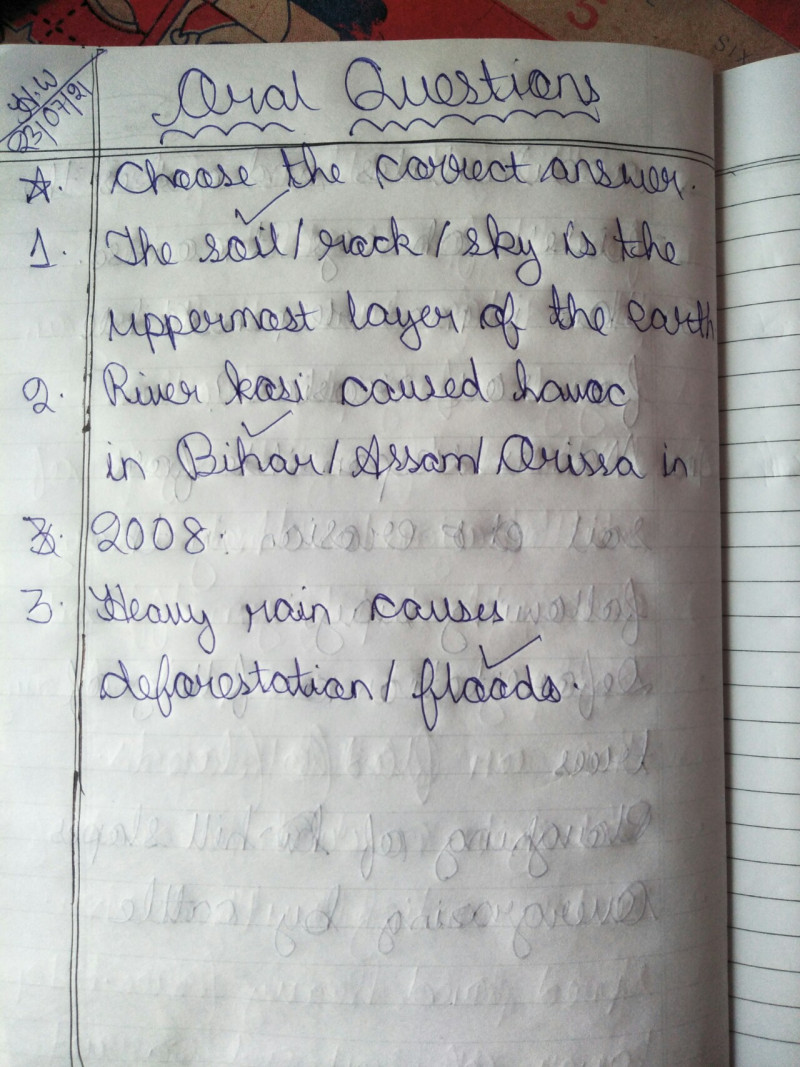 H.W
23/07/21
Oral Questions
☆. Choose the correct answer.
1. The soil/ rock / sky is the
uppermost layer of the earth
2. River kosi caused havoc
in Bihar/ Assam/ Orissa in
2008.
3. Heavy rain causes
deforestation/ floods.